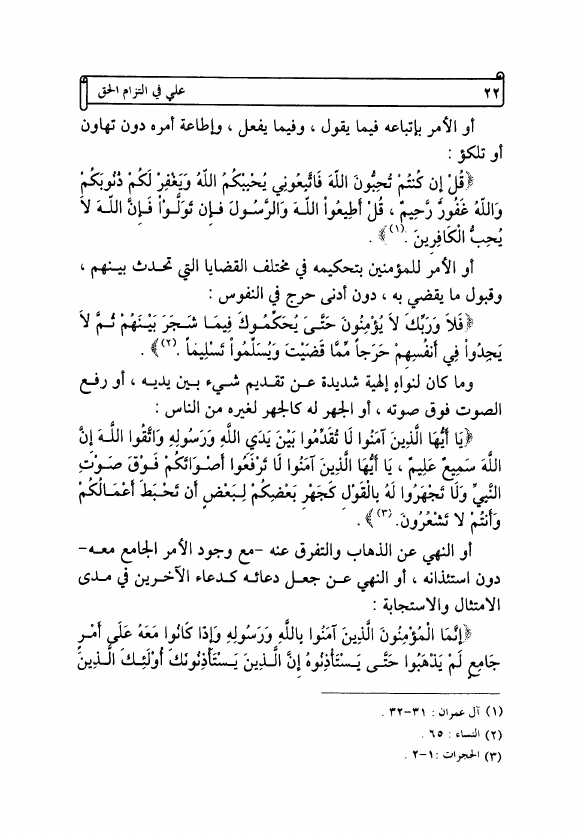 ٢٢ علي في التزام الحق
أو الأمر بإتباعه فيما يقول ، وفيما يفعل ، وإطاعة أمره دون تهاون
أو تلكؤ :
﴿قُلْ إِن كُنتُمْ تُحِبُّونَ اللّهَ فَاتَّبِعُونِي يُحْبِبْكُمُ اللّهُ وَيَغْفِرْ لَكُمْ ذُنُوبَكُمْ
وَاللّهُ غَفُورٌ رَّحِيمٌ ، قُلْ أَطِيعُواْ اللّهَ وَالرَّسُولَ فإِن تَوَلَّوْاْ فَإِنَّ اللّهَ لاَ
يُحِبُّ الْكَافِرِينَ .(١)﴾ .
أو الأمر للمؤمنين بتحكيمه في مختلف القضايا التي تحدث بينهم ،
وقبول ما يقضي به ، دون أدنى حرج في النفوس :
﴿فَلاَ وَرَبِّكَ لاَ يُؤْمِنُونَ حَتَّىَ يُحَكِّمُوكَ فِيمَا شَجَرَ بَيْنَهُمْ ثُمَّ لاَ
يَجِدُواْ فِي أَنفُسِهِمْ حَرَجاً مِّمَّا قَضَيْتَ وَيُسَلِّمُواْ تَسْلِيماً .(٢)﴾ .
وما كان لنواهٍ إلهية شديدة عن تقديم شيء بين يديه ، أو رفع
الصوت فوق صوته ، أو الجهر له كالجهر لغيره من الناس :
﴿يَا أَيُّهَا الَّذِينَ آمَنُوا لَا تُقَدِّمُوا بَيْنَ يَدَيِ اللَّهِ وَرَسُولِهِ وَاتَّقُوا اللَّهَ إِنَّ
اللَّهَ سَمِيعٌ عَلِيمٌ ، يَا أَيُّهَا الَّذِينَ آمَنُوا لَا تَرْفَعُوا أَصْوَاتَكُمْ فَوْقَ صَوْتِ
النَّبِيِّ وَلَا تَجْهَرُوا لَهُ بِالْقَوْلِ كَجَهْرِ بَعْضِكُمْ لِبَعْضٍ أَن تَحْبَطَ أَعْمَالُكُمْ
وَأَنتُمْ لَا تَشْعُرُونَ.(٣)﴾ .
أو النهي عن الذهاب والتفرق عنه -مع وجود الأمر الجامع معه-
دون استئذانه ، أو النهي عن جعل دعائه كدعاء الآخرين في مدى
الامتثال والاستجابة :
﴿إِنَّمَا الْمُؤْمِنُونَ الَّذِينَ آمَنُوا بِاللَّهِ وَرَسُولِهِ وَإِذَا كَانُوا مَعَهُ عَلَى أَمْرٍ
جَامِعٍ لَمْ يَذْهَبُوا حَتَّى يَسْتَأْذِنُوهُ إِنَّ الَّذِينَ يَسْتَأْذِنُونَكَ أُوْلَئِكَ الَّذِينَ
(١) آل عمران : ٣١-٣٢ .
(٢) النساء : ٦٥ .
(٣) الحجرات :١-٢ .